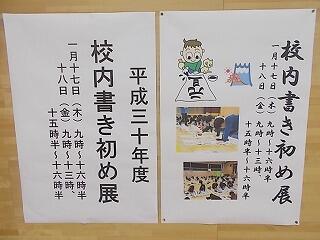 平成三十年度
校内書き初め展
一月十七日（木）九時～十六時半
十八日（金）九時～十三時、
十五時半～十六時半
校内書き初め展
一月十七日（木）九時～十六時半
十八日（金）九時～十三時、
十五時半～十六時半